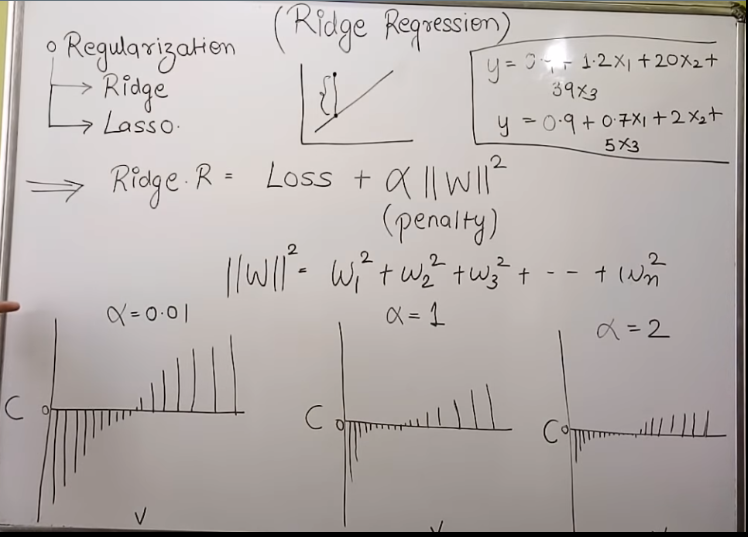 (Ridge Regression)
Regularization
→ Ridge
→ Lasso.
1.2x₁ + 20x₂ +
39x₃
y = 0.9 + 0.7x₁ + 2x₂ +
5x₃
⇒ Ridge.R = Loss + α ||W||²
(penalty)
||W||² = W₁² + W₂² + W₃² + -- + Wn²
α = 0.01
α = 1
α = 2
C 0
C 0
C 0
V